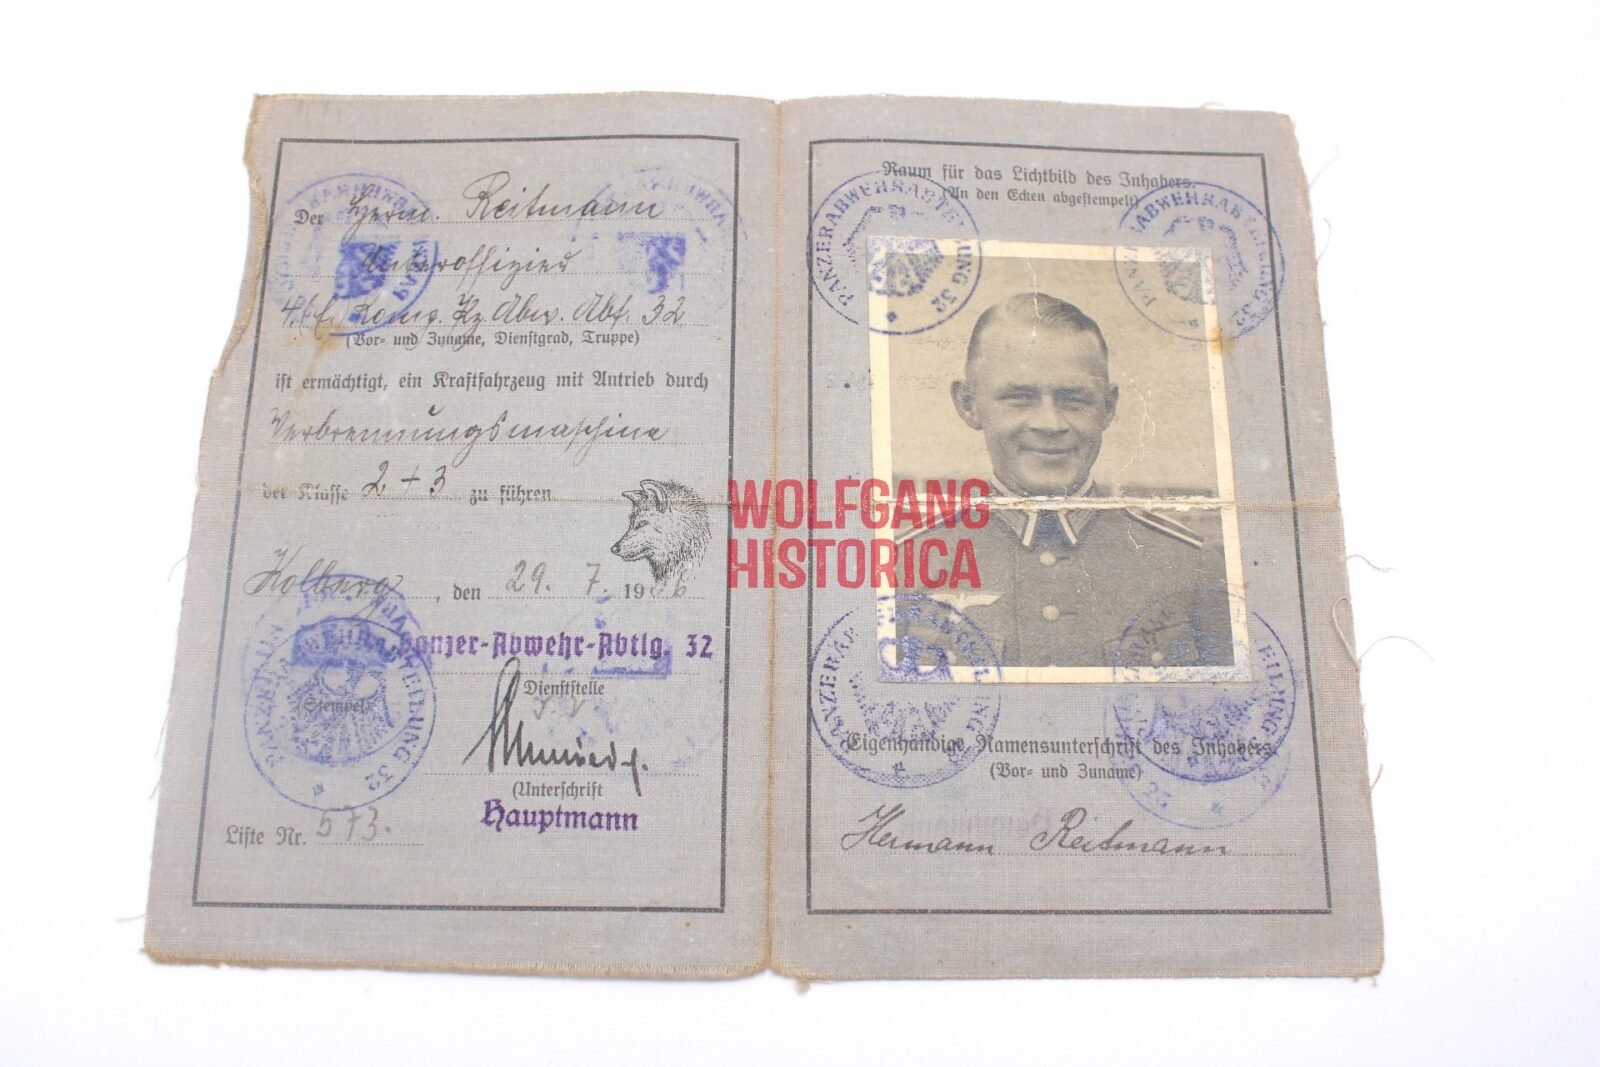 Der Herm. Reitmann
Unteroffizier
Komp. Pz. Abw. Abt. 32
(Vor- und Zuname, Dienstgrad, Truppe)
ist ermächtigt, ein Kraftfahrzeug mit Antrieb durch
Verbrennungsmaschine
der Klasse 2 + 3 zu führen
Kolberg, den 29. 7. 19
Panzer-Abwehr-Abtlg. 32
Dienststelle
(Stempel)
(Unterschrift
Hauptmann
Liste Nr. 573.
Raum für das Lichtbild des Inhabers.
(An den Ecken abgestempelt)
PANZERABWEHRABTEILUNG 32
PANZERABWEHRABTEILUNG 32
PANZERABWEHRABTEILUNG 32
WOLFGANG
HISTORICA
Eigenhändige Namensunterschrift des Inhabers.
(Vor- und Zuname)
Hermann Reitmann